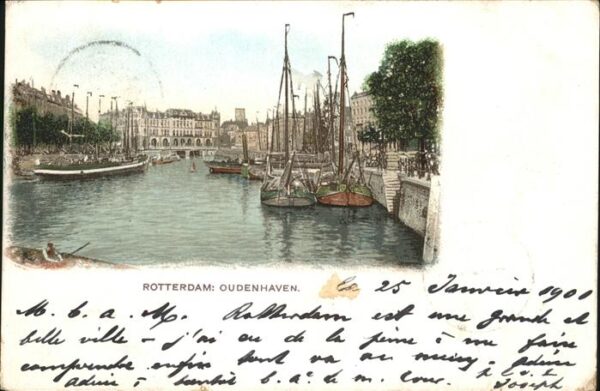 ROTTERDAM: OUDENHAVEN.
Le 25 Janvier 1901
M. b. a. M. Rotterdam est une grande et
belle ville - j'ai eu de la peine à me faire
comprendre enfin tout va au mieux - adieu
adieu à bientôt b. a. de m. cœur.
Joseph